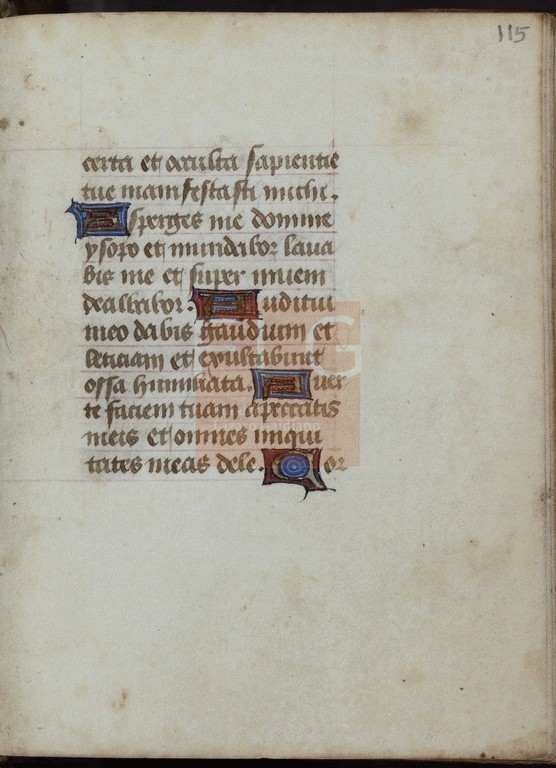 115
certa et occulta sapientie
tue manifestasti michi.
Asperges me domine
ysopo et mundabor laua
bis me et super niuem
dealbabor. Auditui
meo dabis gaudium et
leticiam et exultabunt
ossa humiliata. Auer
te faciem tuam a peccatis
meis et omnes iniqui
tates meas dele. Cor
LG
Lázaro Galdiano